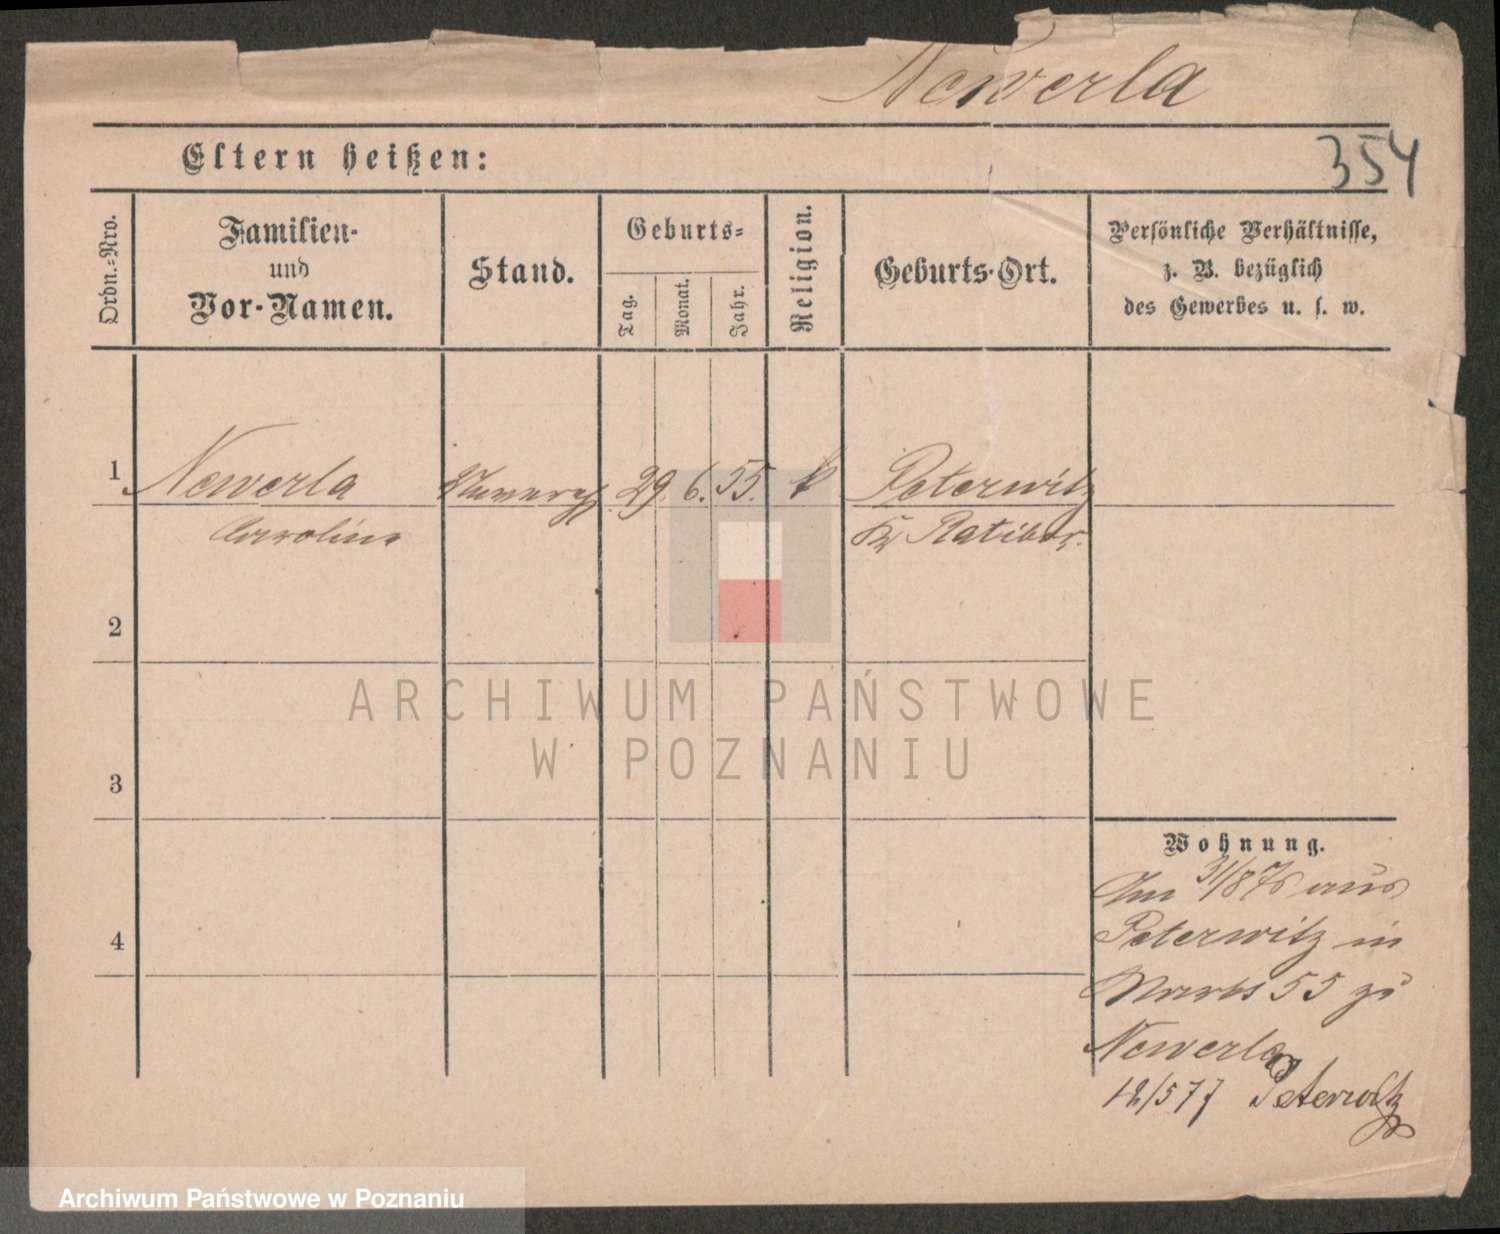 Newerla
354
Eltern heißen:
Ordn.-Nro.
Familien-
und
Vor-Namen.
Stand.
Geburts-
Tag.
Monat.
Jahr.
Religion.
Geburts-Ort.
Persönliche Verhältnisse,
z. B. bezüglich
des Gewerbes u. s. w.
1 Newerla 29. 6. 55. k Peterwitz
Caroline Kr Ratibor.
2
3
4
Wohnung.
Am 31/8 76 aus
Peterwitz in
55 zu
Newerla
12/5 77 Peterwitz
ARCHIWUM PAŃSTWOWE
W POZNANIU
Archiwum Państwowe w Poznaniu